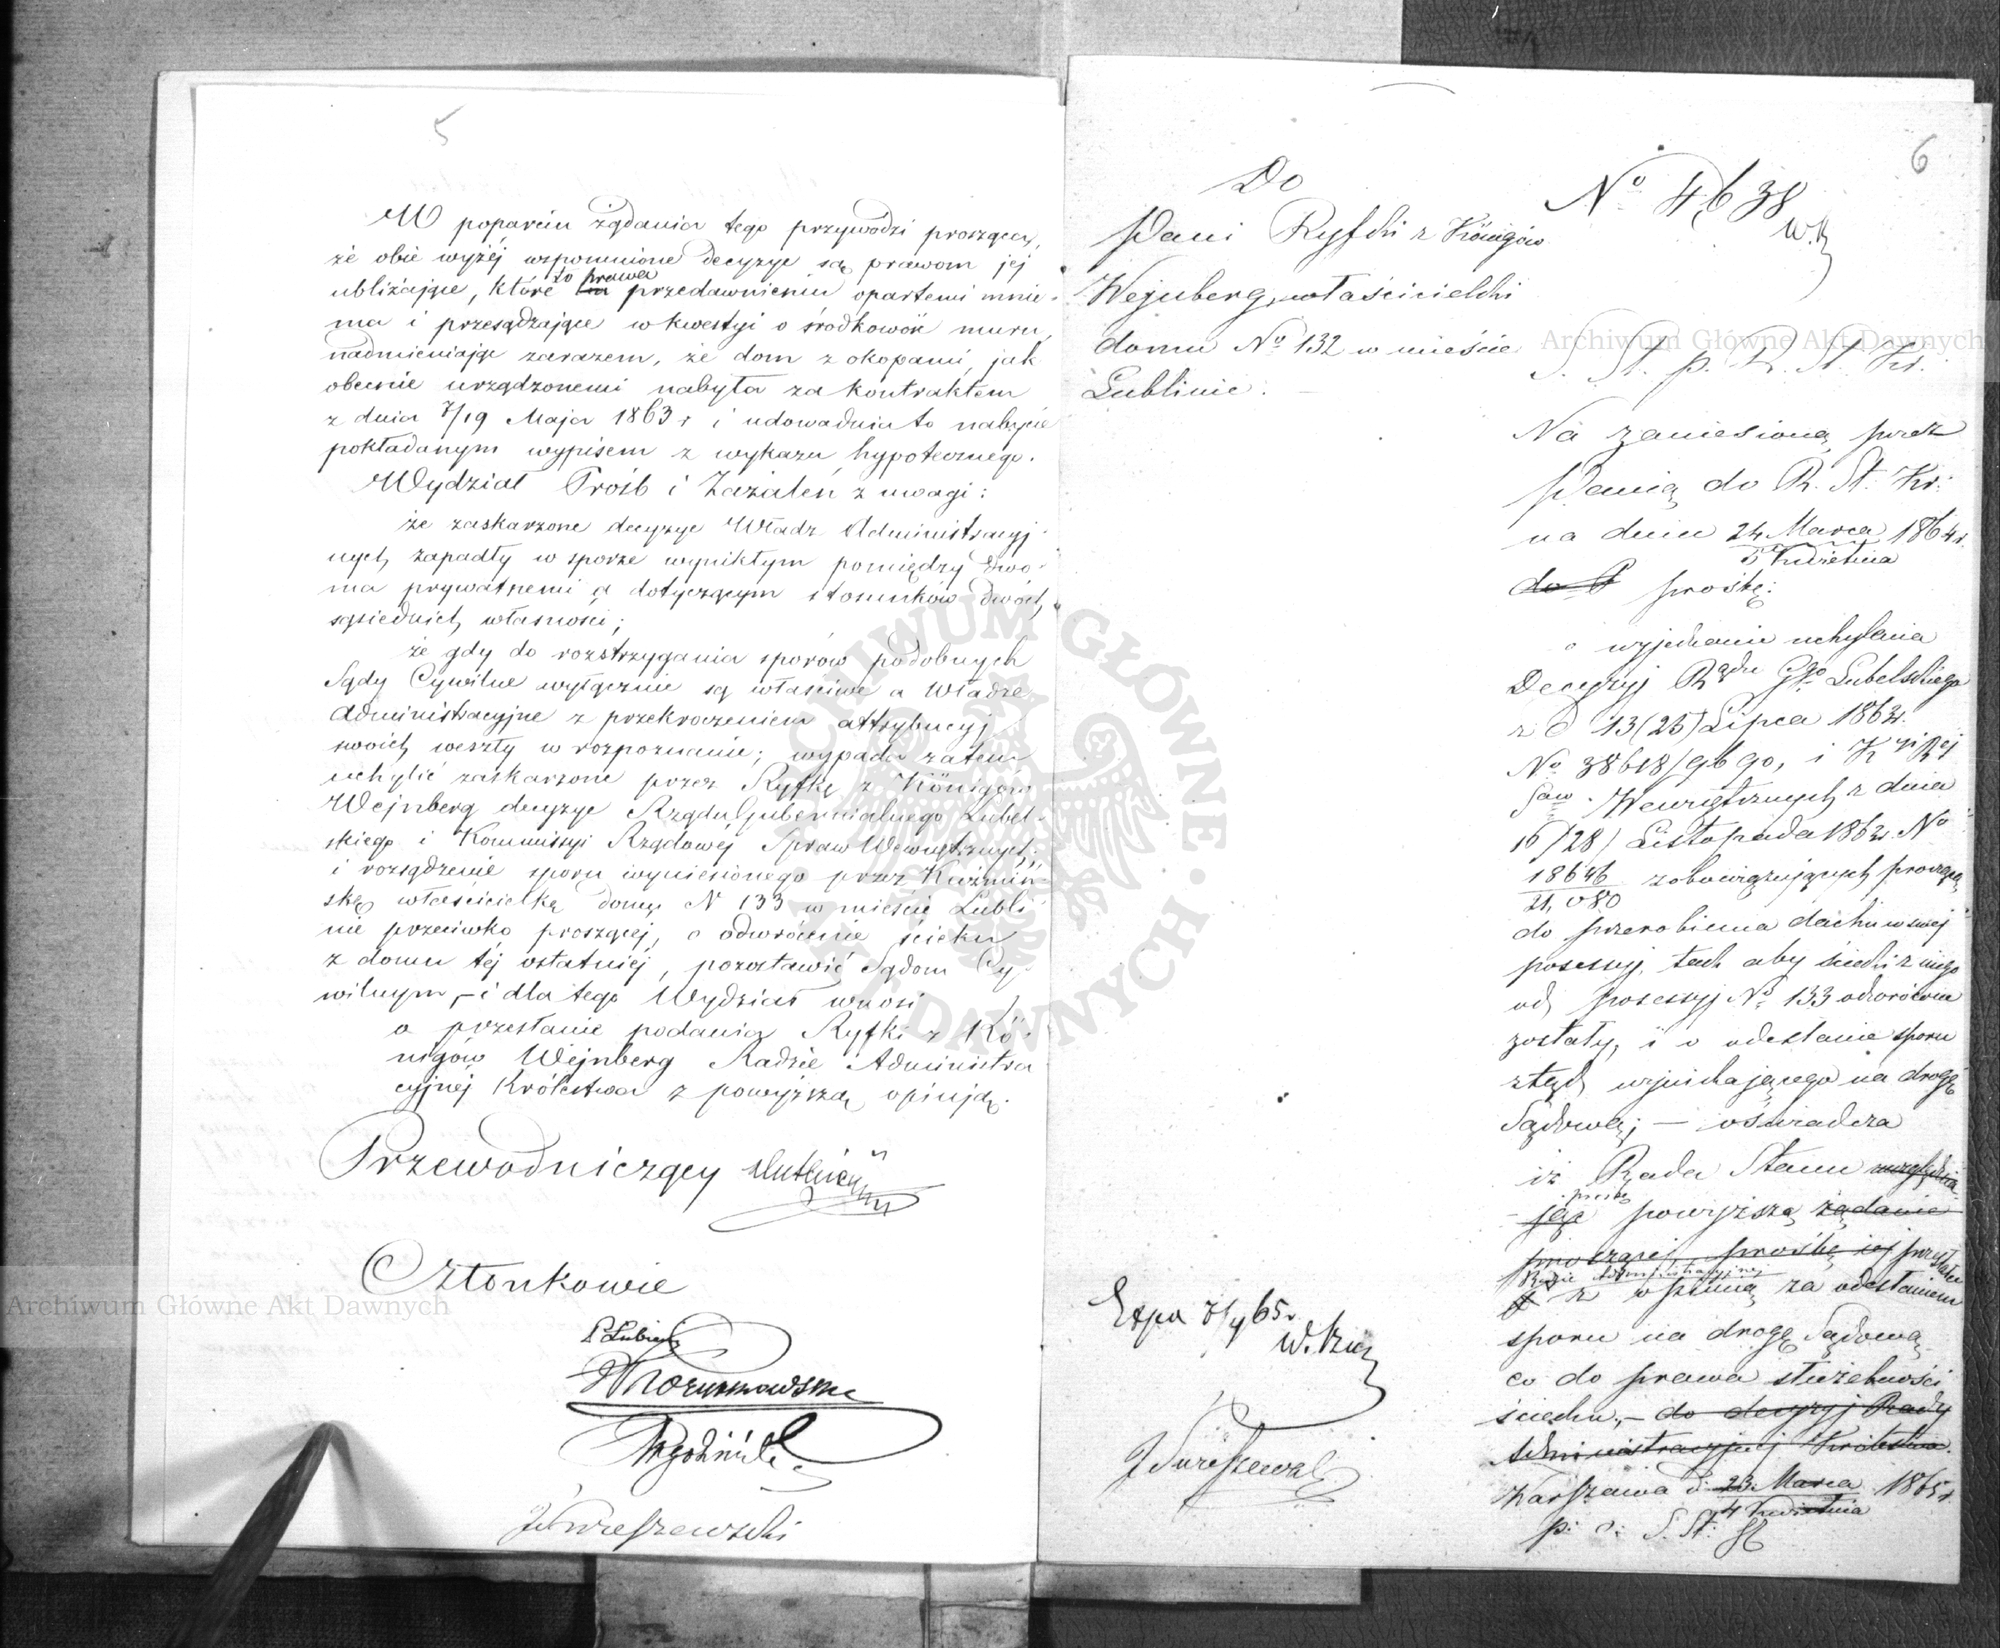 5
W poparciu żądania tego przywodzi prosząca,
że obie wyżéj wspomnione decyzye są prawom jej
ubliżające, które to prawa przedawnieniu opartemi mnie-
ma i przesądzające w kwestyi o środkowość muru,
nadmieniając zarazem, że dom z okopami, jak
obecnie urządzonemi nabyła za kontraktem
z dnia 7/19 Maja 1863 r i udowadnia to nabycie
pokładanym wypisem z wykazu hypotecznego.
Wydział Próśb i Zażaleń z uwagi:
że zaskarżone decyzye Władz Administracyj-
nych, zapadły w sporze wynikłym pomiędzy dwo-
ma prywatnemi a dotyczącym stosunków dwóch
sąsiednich własności;
że gdy do rozstrzygania sporów podobnych
Sądy Cywilne wyłącznie są właściwe a Władze
Administracyjne z przekroczeniem attrybucyj
swoich weszły w rozpoznanie; wypada zatem
uchylić zaskarżone przez Ryfkę z Königów
Wejnberg decyzye Rządu Gubernialnego Lubel-
skiego i Kommissyi Rządowéj Spraw Wewnętrznych,
i rozsądzenie sporu wyniesionego przez Kuźmiń-
skę właścicielkę domu N 133 w mieście Lubli-
nie przeciwko proszącej, o odwrócenie ścieku
z domu téj ostatniéj, pozostawić Sądom Cy-
wilnym, – i dla tego Wydział wnosi
o przesłanie podania Ryfki z Kö-
nigów Wejnberg Radzie Administra
cyjnéj Królestwa z powyższą opinją.
Przewodniczący
Członkowie
6
Do
Pani Ryfki z Königów
Wejnberg, właścicielki
domu No 132 w mieście
Lublinie.
No 4638
S. St. p. R. St. Kr.
Na zaniesioną przez
Panią do R. St. Kr:
na dniu 24 Marca 1864 r.
5 Kwietnia
do prośbę:
o wyjednanie uchylenia
Decyzyj Rządu Ggo Lubelskiego
z d 13 (25) Lipca 1863 r.
No 38618/9690, i
Spaw. Wewnętrznych z dnia
16/28) Listopada 1863 r. No
18646
21,080 zobowiązujących proszącą
do przerobienia dachu w swéj
posessyj, tak aby ścieki z niego
od posessyj No 133 odwrócone
zostały, i o odesłanie sporu
ztąd wynikającego na drogę
Sądową; – oświadcza
iż Rada Stanu
prośbę powyższą żądanie
proszącej, prośbę jej przesłała
Radzie Administracyjnej
z opinią za odesłaniem
sporu na drogę Sądową
co do prawa służebności
ścieku, – do decyzyj Rady
Administracyjnej Królestwa.
Warszawa d. 23 Marca 1865 r.
4 Kwietnia
p. o. S. St:
Archiwum Główne Akt Dawnych
Archiwum Główne Akt Dawnych
ARCHIWUM GŁÓWNE AKT DAWNYCH